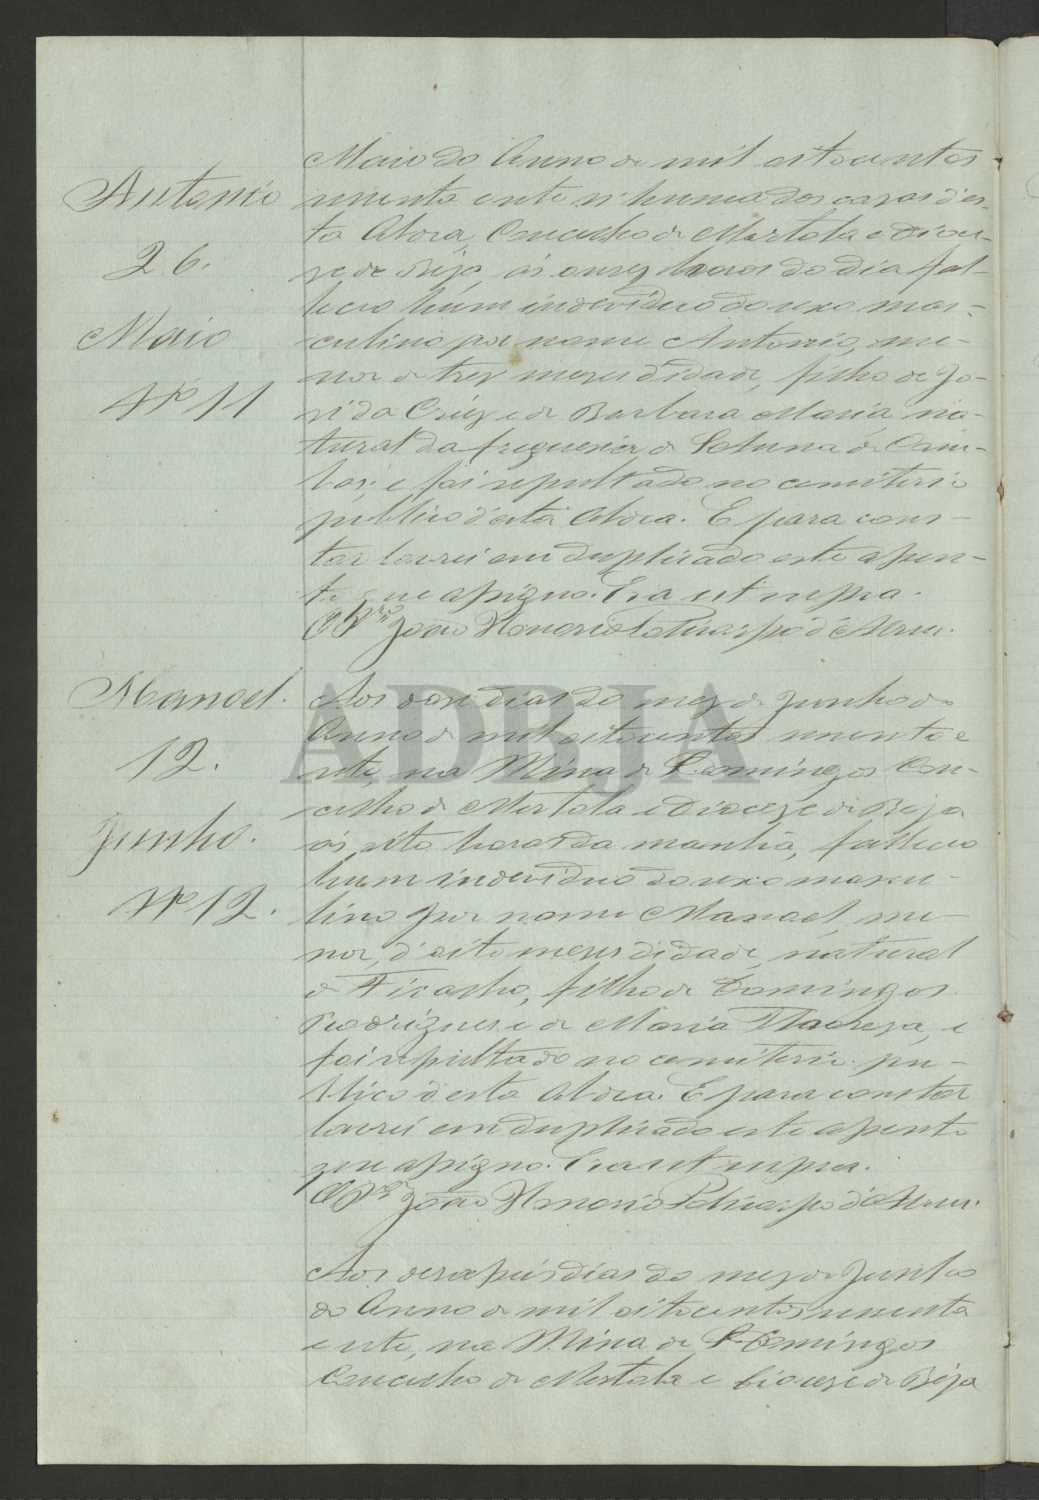 Maio do Anno de mil oitocentos
Antonio
noventa e sete n'huma das casas d'es-
ta Aldea, Concelho de Mertola e Dioce-
26.
ze de Beja, ás onze horas do dia fal-
leceo hum individuo do sexo mas-
Maio
culino por nome Antonio, me-
nor de trez mezes d'idade, filho de Jo-
Nº 11
sé da Cruz e de Barbara Maria, na-
tural da freguesia de
e foi sepultado no cemiterio
publico d'esta Aldea. E para cons-
tar lavrei em duplicado este assen-
to que assigno. Era ut supra.
O Pr João Honorio d'
Manoel.
Aos doze dias do mez de Junho do
Anno de mil oitocentos noventa e
12.
sete, na Mina de S. Domingos Con-
celho de Mertola e Dioceze de Beja
Junho.
ás oito horas da manhã, falleceo
hum individuo do sexo mascu-
Nº 12.
lino por nome Manoel, me-
nor, d'oito mezes d'idade, natural
de, filho de Domingos
Rodrigues e de Maria Thereza, e
foi sepultado no cemiterio pu-
blico d'esta Aldea. E para constar
lavrei em duplicado este assento
que assigno. Era ut supra.
O Pr João Honorio d'
Aos dezaseis dias do mez de Junho
do Anno de mil oitocentos noventa
e sete, na Mina de S. Domingos
Concelho de Mertola e Dioceze de Beja
ADBJA